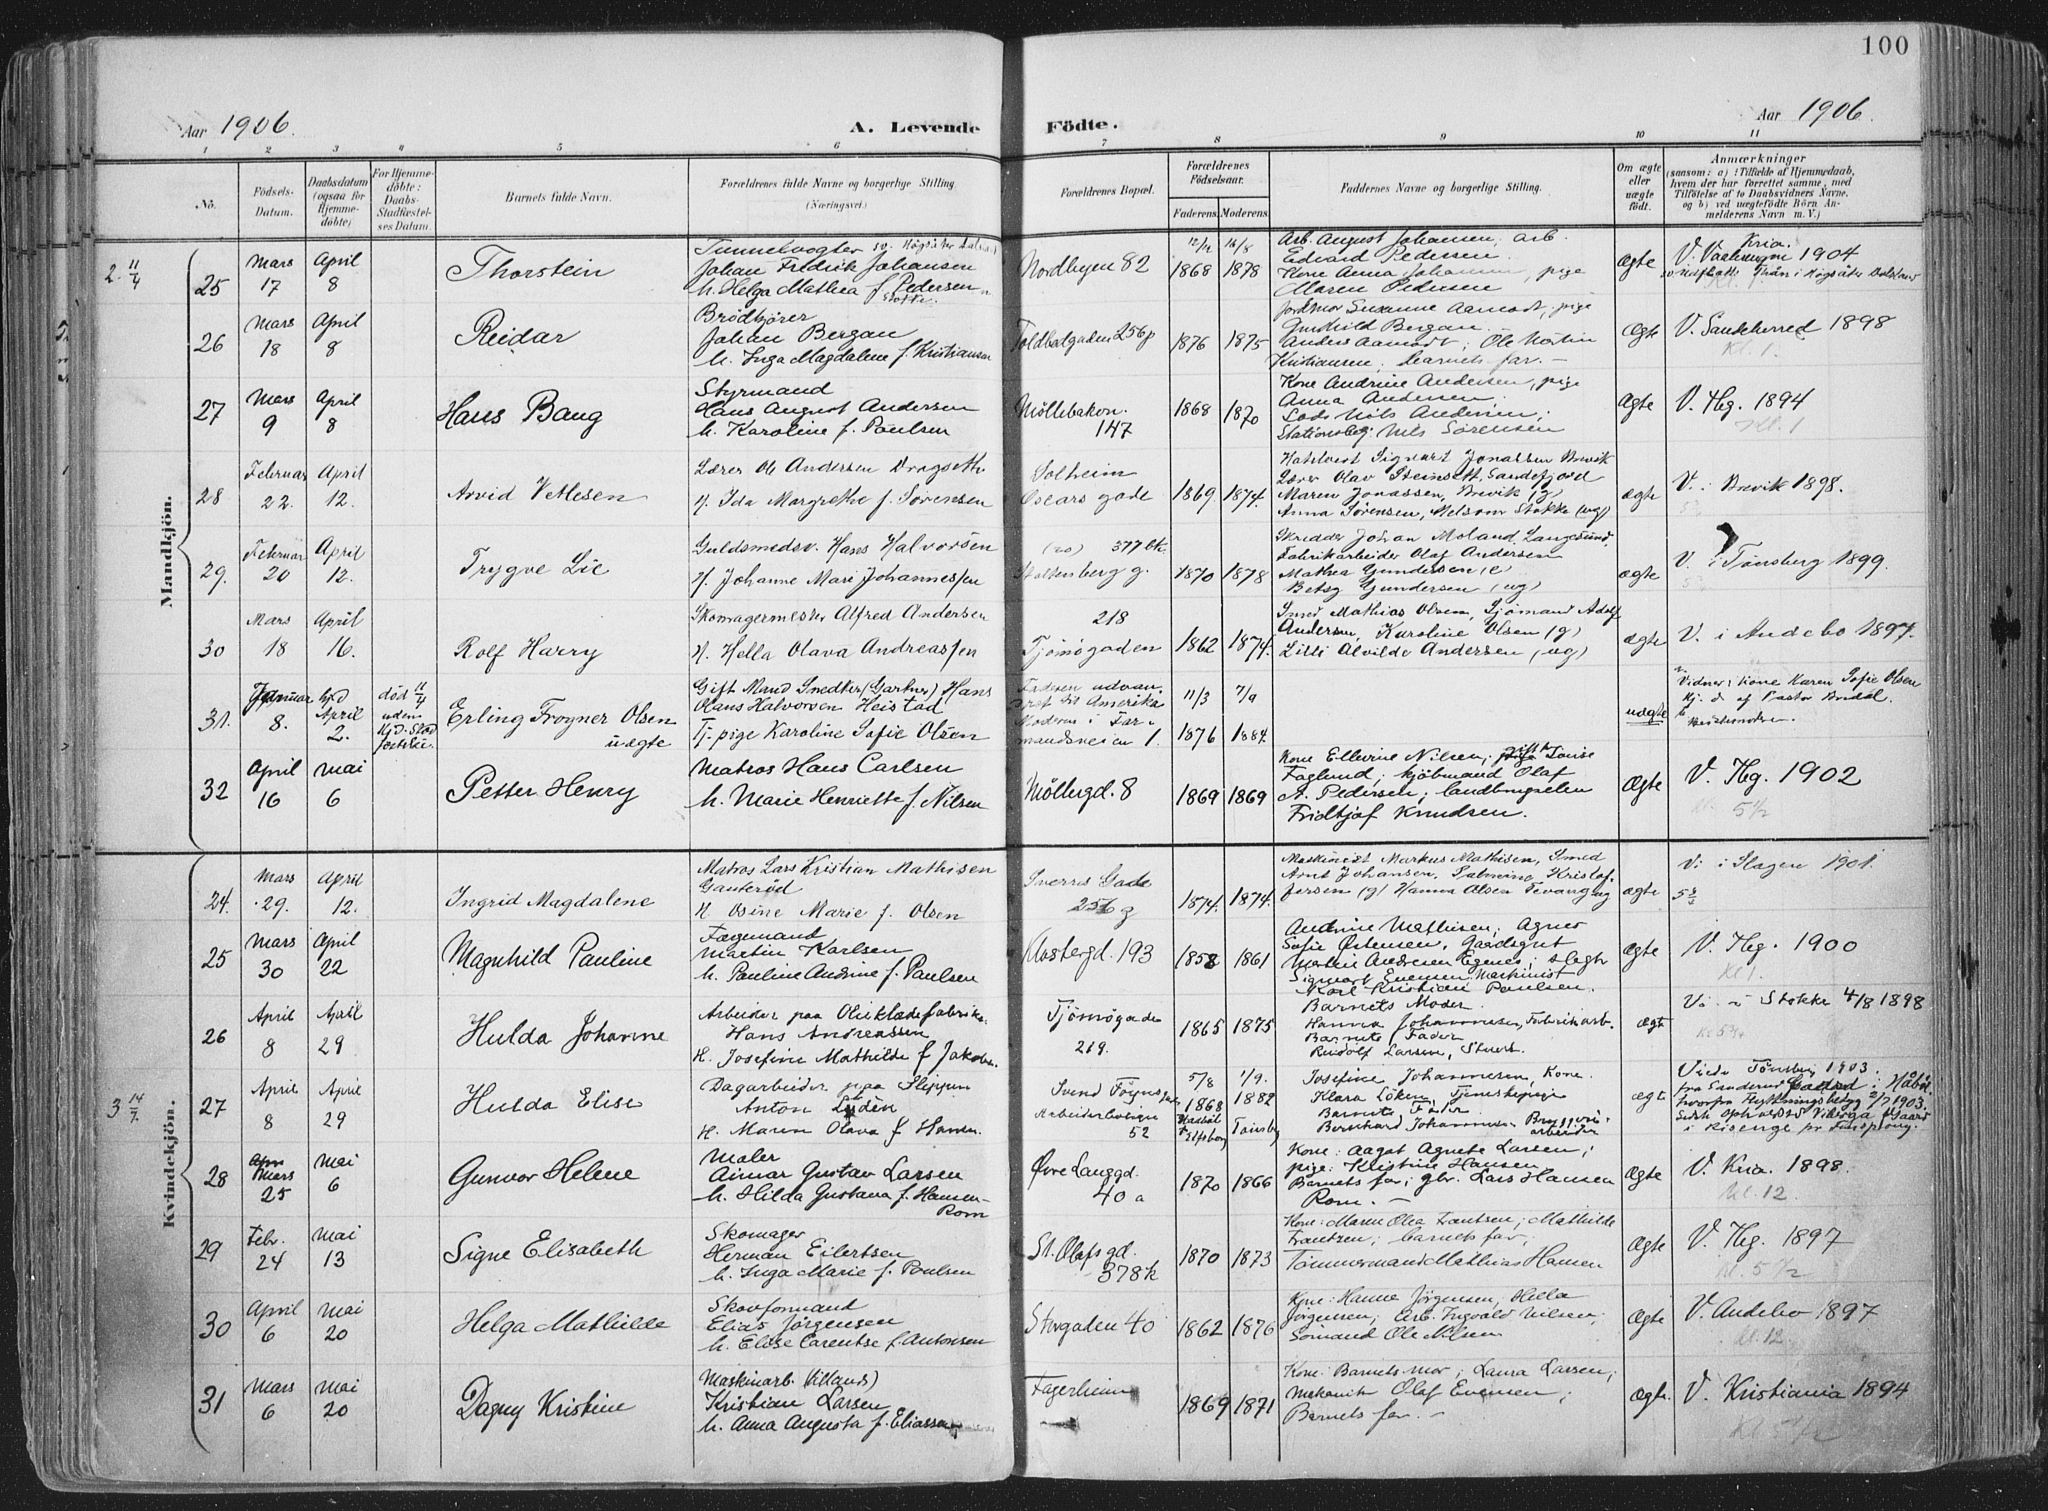 100
Aar 1906.
A. Levende Födte.
Aar 1906.
1 2 3 4 5 6 7 8 9 10 11
No.
Födsels-
Datum.
Daabsdatum
(ogsaa for
Hjemme-
döbte)
For Hjemme-
döbte:
Daabs-
Stadfæstel-
ses Datum.
Barnets fulde Navn.
Forældrenes fulde Navne og borgerlige Stilling
(Næringsvei.)
Forældrenes Bopæl.
Forældrenes
Födselsaar.
Faderens.
Moderens.
Faddernes Navne og borgerlige Stilling.
Om ægte
eller
uægte
födt.
Anmærkninger
(saasom: a) i Tilfælde af Hjemmedaab,
hvem der har forrettet samme, med
Tilföielse af to Daabsvidners Navne,
og b) ved uægtefödte Börn An-
melderens Navn m. V.)
Mandkjön.
2. 11/4
25
Mars
17
April
8
Thorstein
Tunnelvogter
Johan Fredrik Johansen
h. Helga Mathea f. Pedersen
Stokke.
Nordbyen 82
1868
1878
Arb. August Johansen, arb.
Edvard Pedersen
Kone Anna Johansen, pige
Maren Pedersen
ægte
Kria.
1904
26
Mars
18
April
8
Reidar
Brödkjörer
Johan Bergan
h. Inga Magdalene f. Kristiansen
Toldbodgaden 256
1876
1875
Jordmor Susanne Aamodt, pige
Gunhild Bergan
Anders Aamodt; Ole Martin
Kristiansen; barnets far. –
Ægte
V. Sandeherred 1898
Kl. 1.
27
Mars
9
April
8
Hans Bang
Styrmand
Hans August Andersen
h. Karoline f. Paulsen
Möllebakken.
147
1868
1870
Kone Andrine Andersen, pige
Anna Andersen,
Lods Nils Andersen;
Stationsbetj. Nils Sörensen
Ægte
V. Tbg. 1894
Kl. 1
28
Februar
22.
April
12.
Arvid Vetlesen
Lærer Ole Andersen Dragseth
H. Ida Margrethe f. Sörensen
Solheim
Oscars gade
1869.
1874.
Sigvart Jonassen Brevik
Lærer Olav Steinsett, Sandefjord
Maren Jonassen, Brevik (g)
Anna Sörensen, Melsom Stokke (ug)
ægte
V. i Brevik 1898.
29.
Februar
20
April
12.
Trygve Lie
Guldsmedsv. Hans Halvorsen
H. Johanne Marie Johannessen
377 bk.
Stoltenberg g.
1870
1878
Skredder Johan Moland, Langesund,
Fabrikarbeider Olaf Andersen
Mathea Gundersen (e)
Betsy Gundersen (ug)
ægte
V. i Tönsberg 1899.
30
Mars
18
April
16.
Rolf Harry
Skomagermester Alfred Andersen
H. Hella Olava Andreassen
218
Tjömögaden
1862
1874.
Smed Mathias Olsen, Sjömand Adolf
Andersen, Karoline Olsen (g)
Lilli Alvilde Andersen (ug)
ægte
V. i Andebo 1897.
31.
Januar
8.
April
2.
död 11/4
uden
Erling Frogner Olsen
uægte
Gift Mand Snedker (Gartner) Hans
Olaus Halvorsen Heistad
Tj. pige Karoline Sofie Olsen
Faderen udvan-
dret til Amerika
Moderen i Far-
mandsveien 1.
11/3
7/9
1876
1884.
uægte
Vidner: kone Karen Sofie Olsen
Kj. d. af Pastor Bridal.
32
April
16
Mai
6
Petter Henry
Matros Hans Carlsen
h. Marie Henriette f. Nilsen
Möllergd. 8
1869
1869
Kone Ellevine Nilsen; gift k. Louise
Faglund; kjöbmand Olaf
A. Pedersen; landbrugselev
Fridtjof Knudsen.
Ægte
V. Tbg. 1902
Kl. 5 1/2
Kvindekjön.
24.
Mars
29.
April
12.
Ingrid Magdalene
Matros Lars Kristian Mathisen
Gauteröd
H. Osine Marie f. Olsen
Sverres Gade
256 g
1874.
1874.
Maskinist Markus Mathisen, Smed
Arnt Johansen, Salmine Kristof-
fersen (g) Hanna Olsen Tevang ug
ægte
Vi. i Slagen 1901.
25
Mars
30
April
22
Magnhild Pauline
Færgemand
Martin Karlsen
h. Pauline Andrine f. Paulsen
Klostergd. 193
1858
1861
Andrine Mathisen; Agnes
Sofie Östensen, Gaardsgut
Martin Andersen Egenes; slagter
Sigvart Evensen, Maskinist
Karl Kristian Paulsen.
Ægte
V. Tbg. 1900
Kl. 1.
26
April
8
April
29
Hulda Johanne
Arbeider paa Olieklædefabriken
Hans Andreassen
H. Josefine Mathilde f Jakobsen
Tjömögade
219.
1865
1875
Barnets Moder
Hanna Johannesen, Fabrikarb.
Barnets Fader
Rudolf Larsen, Stuert.
ægte
Vi. i Stokke 4/8 1898
3 14/7
27
April
8
April
29
Hulda Elise
Dagarbeider paa Slippen
Anton Lydén
H. Maren Olava f Hansen
Svend Föyns
Arbeiderbolig
52
5/8
1868
1/9.
1882
Tönsberg
Josefine Johannesen, Kone.
Klara Löken, Tjenestepige
Barnets Fader
Bernhard Johannesen Bryggeri-
arbeider
ægte
Viede Tönsberg 1903.
28
Mars
25
Mai
6
Gunvor Helene
Maler
Aimar Gustav Larsen
h. Hilda Gustava f. Hansen-
Rom
Övre Langgd.
40 a
1870
1866
Kone: Aagot Agnete Larsen;
pige: Kristine Hansen
Barnets far; gbr. Lars Hansen
Rom. –
Ægte
V. Kria. 1898.
Kl. 12.
29
Febr.
24
Mai
13
Signe Elisabeth
Skomager
Herman Eilertsen
h. Inga Marie f. Paulsen
St. Olafsgd.
378 k
1870
1873
Kone: Maren Olea Frantsen; Mathilde
Frantzen; barnets far;
Tömmermand Mathias Hansen
Ægte
V. Tbg. 1897
Kl. 5 1/2
30
April
6
Mai
20
Helga Mathilde
Skovformand
Elias Jörgensen
h. Elise Carentse f. Antonsen
Storgaden 40
1862
1876
Kone: Hanne Jörgensen, Hella
Jörgensen; Arb. Ingvald Nilsen;
Sömand Ole Nilsen
Ægte
V. Andebo 1897
Kl. 12.
31
Mars
6
Mai
20
Dagny Kristine
Maskinarb. (Vilands)
Kristian Larsen
h. Anna Augusta f. Eliassen
Fagerheim
1869
1871
Kone: Barnets mor; Laura Larsen;
Mekanik. Olaf Evensen;
Barnets far. –
Ægte
V. Kristiania 1894
Kl. 5 1/2